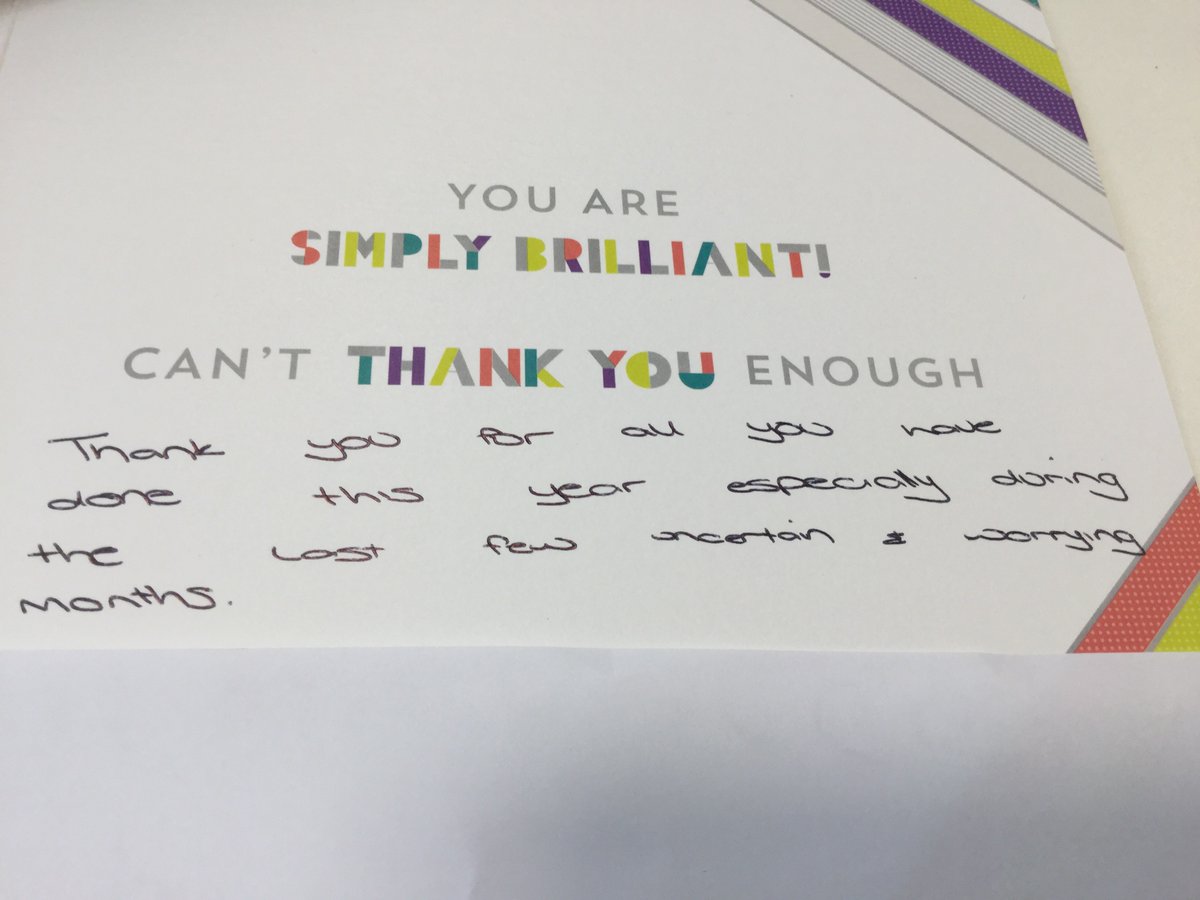 YOU ARE
SIMPLY BRILLIANT!
CAN'T THANK YOU ENOUGH
Thank you for all you have
done this year especially during
the last few uncertain & worrying
months.